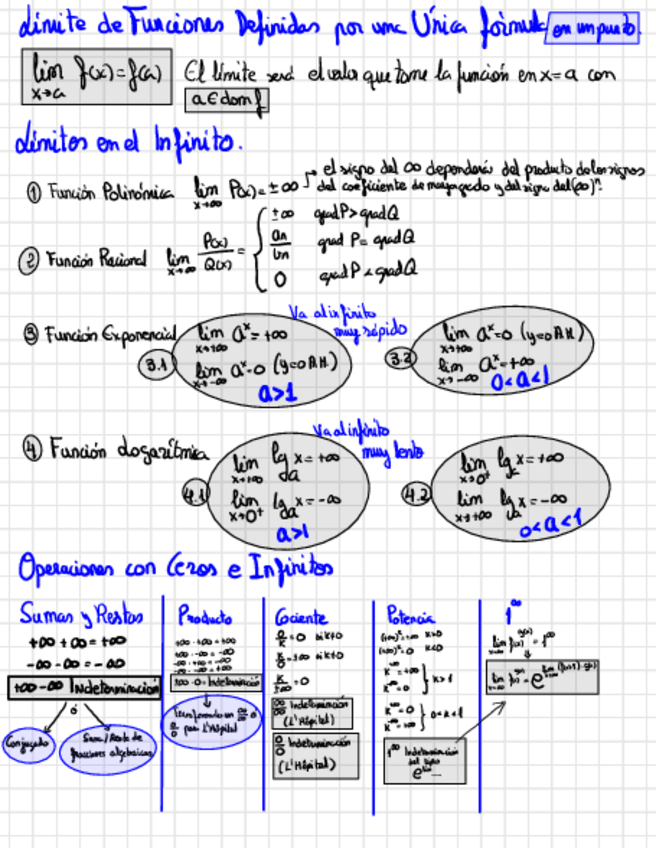 Límite de Funciones Definidas por una Única fórmula en un punto.
lim f(x)=f(a)
x→a
El límite será el valor que tome la función en x=a con
a∈dom f
Límites en el Infinito.
① Función Polinómica lim P(x)=±∞
x→∞
el signo del ∞ dependerá del producto de los signos
del coeficiente de mayor grado y del signo del (∞)ⁿ
② Función Racional lim P(x)/Q(x) =
x→∞
±∞ grad P > grad Q
an/bn grad P = grad Q
0 grad P < grad Q
③ Función Exponencial
3.1
lim aˣ=+∞
x→+∞
lim aˣ=0 (y=0 A.H.)
x→-∞
a>1
Va al infinito
muy rápido
3.2
lim aˣ=0 (y=0 A.H.)
x→+∞
lim aˣ=+∞
x→-∞
0<a<1
④ Función Logarítmica
4.1
lim lg x=+∞
x→+∞ a
lim lg x=-∞
x→0⁺ a
a>1
Va al infinito
muy lento
4.2
lim lg x=+∞
x→0⁺ a
lim lg x=-∞
x→+∞ a
0<a<1
Operaciones con Ceros e Infinitos
Sumas y Restas
+∞ +∞ = +∞
-∞ -∞ = -∞
+∞ -∞ Indeterminación
ó
Conjugado
Suma/Resta de
fracciones algebraicas
Producto
+∞ · +∞ = +∞
+∞ · -∞ = -∞
-∞ · +∞ = -∞
-∞ · -∞ = +∞
±∞ · 0 = Indeterminación
por L'Hôpital
Cociente
0/k = 0 si k≠0
k/0 = ±∞ si k≠0
k/±∞ = 0
∞/∞ Indeterminación
(L'Hôpital)
0/0 Indeterminación
(L'Hôpital)
Potencia
(+∞)ᵏ=+∞ k>0
(+∞)ᵏ=0 k<0
k⁺∞=∞
k⁻∞=0
k>1
k⁺∞=0
k⁻∞=+∞
0<k<1
1^∞ Indeterminación
del tipo
1^∞